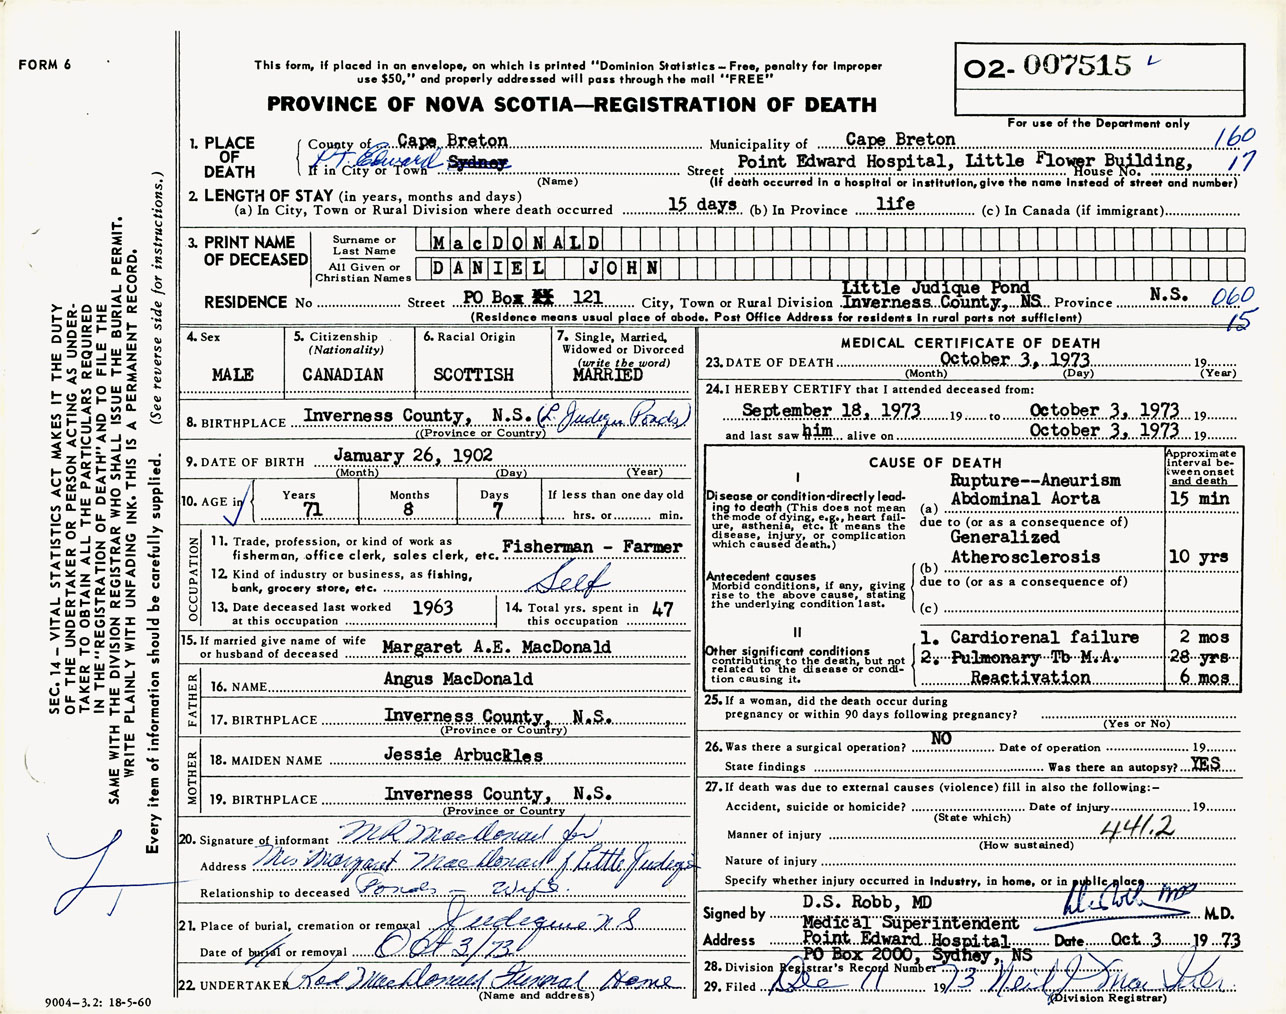 FORM 6
This form, if placed in an envelope, on which is printed "Dominion Statistics – Free, penalty for improper
use $50," and properly addressed will pass through the mail "FREE"
O2- 007515
For use of the Department only
PROVINCE OF NOVA SCOTIA—REGISTRATION OF DEATH
1. PLACE OF DEATH
County of Cape Breton Municipality of Cape Breton 160
If in City or Town Pt. Edward Sydney Street Point Edward Hospital, Little Flower Building, House No. 17
(Name) (If death occurred in a hospital or institution, give the name instead of street and number)
2. LENGTH OF STAY (in years, months and days)
(a) In City, Town or Rural Division where death occurred 15 days (b) In Province life (c) In Canada (if immigrant)
3. PRINT NAME OF DECEASED
Surname or Last Name MacDONALD
All Given or Christian Names DANIEL JOHN
Little Judique Pond
RESIDENCE No Street PO Box 121 City, Town or Rural Division Inverness County, NS Province N.S. 060
(Residence means usual place of abode. Post Office Address for residents in rural parts not sufficient) 15
4. Sex MALE
5. Citizenship (Nationality) CANADIAN
6. Racial Origin SCOTTISH
7. Single, Married, Widowed or Divorced (write the word) MARRIED
8. BIRTHPLACE Inverness County, N.S. (L. Judique Ponds)
(Province or Country)
9. DATE OF BIRTH January 26, 1902
(Month) (Day) (Year)
10. AGE in Years 71 Months 8 Days 7 If less than one day old hrs. or min.
OCCUPATION
11. Trade, profession, or kind of work as
fisherman, office clerk, sales clerk, etc. Fisherman - Farmer
12. Kind of industry or business, as fishing,
bank, grocery store, etc. Self
13. Date deceased last worked at this occupation 1963
14. Total yrs. spent in this occupation 47
15. If married give name of wife
or husband of deceased Margaret A.E. MacDonald
FATHER
16. NAME Angus MacDonald
17. BIRTHPLACE Inverness County, N.S.
(Province or Country)
MOTHER
18. MAIDEN NAME Jessie Arbuckles
19. BIRTHPLACE Inverness County, N.S.
(Province or Country
20. Signature of informant MR MacDonald for
Address Mrs Margaret MacDonald of Little Judique
Relationship to deceased Ponds - Wife.
21. Place of burial, cremation or removal Judique N S
Date of burial or removal Oct 3/73
22. UNDERTAKER Rod MacDonald Funeral Home
(Name and address)
9004–3.2: 18-5-60
MEDICAL CERTIFICATE OF DEATH
23. DATE OF DEATH October 3, 1973 19
(Month) (Day) (Year)
24. I HEREBY CERTIFY that I attended deceased from:
September 18, 1973 19 to October 3, 1973 19
and last saw him alive on October 3, 1973 19
CAUSE OF DEATH
Approximate interval between onset and death
I
Disease or condition directly leading to death (This does not
mean the mode of dying, e.g., heart failure, asthenia, etc. It means the
disease, injury, or complication
which caused death.)
Rupture--Aneurism
(a) Abdominal Aorta 15 min
due to (or as a consequence of)
Generalized
(b) Atherosclerosis 10 yrs
due to (or as a consequence of)
(c)
Antecedent causes
Morbid conditions, if any, giving
rise to the above cause, stating
the underlying condition last.
II
Other significant conditions
contributing to the death, but not
related to the disease or condition causing it.
1. Cardiorenal failure 2 mos
2. Pulmonary Tb M.A. 28 yrs
Reactivation 6 mos
25. If a woman, did the death occur during
pregnancy or within 90 days following pregnancy?
(Yes or No)
26. Was there a surgical operation? NO Date of operation 19
State findings Was there an autopsy? YES
27. If death was due to external causes (violence) fill in also the following:–
Accident, suicide or homicide? Date of injury 19
(State which)
Manner of injury 441.2
(How sustained)
Nature of injury
Specify whether injury occurred in industry, in home, or in public place
Signed by D.S. Robb, MD M.D.
Medical Superintendent
Address Point Edward Hospital Date Oct 3 19 73
PO Box 2000, Sydney, NS
28. Division Registrar's Record Number
29. Filed Dec 11 1973
(Division Registrar)
SEC. 14 – VITAL STATISTICS ACT MAKES IT THE DUTY
OF THE UNDERTAKER OR PERSON ACTING AS UNDER-
TAKER TO OBTAIN ALL THE PARTICULARS REQUIRED
IN THE "REGISTRATION OF DEATH" AND TO FILE THE
SAME WITH THE DIVISION REGISTRAR WHO SHALL ISSUE THE BURIAL PERMIT.
WRITE PLAINLY WITH UNFADING INK. THIS IS A PERMANENT RECORD.
Every item of information should be carefully supplied. (See reverse side for instructions.)